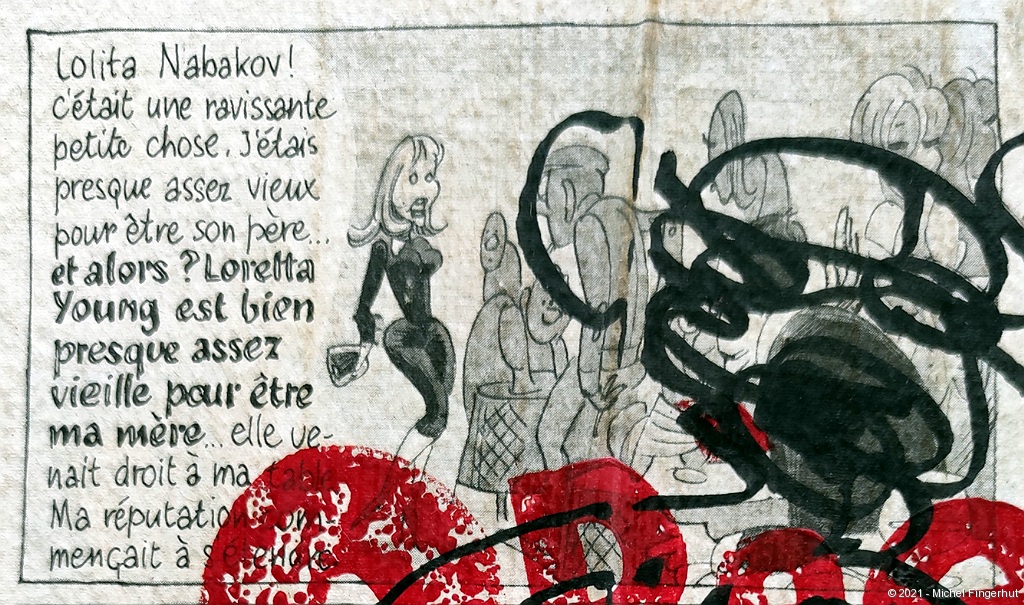 Lolita Nabakov!
c'était une ravissante
petite chose. J'étais
presque assez vieux
pour être son père...
et alors ? Loretta
Young est bien
presque assez
vieille pour être
ma mère... elle ve-
nait droit à ma table
Ma réputation com-
mençait à s'étendre
© 2021 - Michel Fingerhut